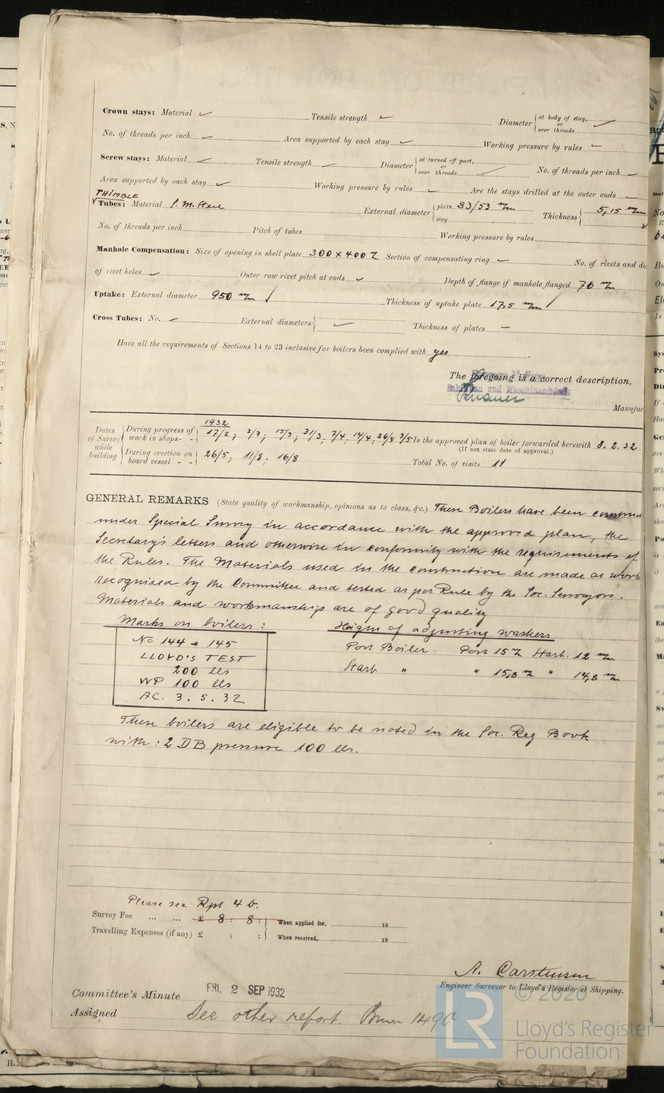 Crown stays: Material ✓ Tensile strength ✓ Diameter { at body of stay, or over threads ✓
No. of threads per inch ✓ Area supported by each stay ✓ Working pressure by rules –
Screw stays: Material ✓ Tensile strength ✓ Diameter { at turned off part, or over threads No. of threads per inch –
Area supported by each stay ✓ Working pressure by rules ✓ Are the stays drilled at the outer ends –
THIMBLE
Tubes: Material S.M. Steel External diameter { plain 83/53 m/m stay Thickness { 5,15 m/m
No. of threads per inch Pitch of tubes Working pressure by rules
Manhole Compensation: Size of opening in shell plate 300 x 400 Section of compensating ring – No. of rivets and di
of rivet holes ✓ Outer row rivet pitch at ends ✓ Depth of flange if manhole flanged 76 m/m
Uptake: External diameter 950 m/m Thickness of uptake plate 17,5 m/m
Cross Tubes: No. – External diameters { ✓ Thickness of plates –
Have all the requirements of Sections 14 to 23 inclusive for boilers been complied with yes
The foregoing is a correct description,
Manufac
1932
Dates of Survey while building { During progress of work in shops - - { 17/2, 2/3, 15/3, 31/3, 7/4, 14/4, 26/4, 3/5 Is the approved plan of boiler forwarded herewith 8.2.32
(If not state date of approval.)
During erection on board vessel - - { 26/5, 11/8, 16/8 Total No. of visits 11
GENERAL REMARKS (State quality of workmanship, opinions as to class, &c.) These Boilers have been
under Special Survey in accordance with the approved plan, the
Secretary's letters and otherwise in conformity with the requirements of
the Rules. The Materials used in the construction are made at works
recognised by the Committee and tested as per Rule by the Soc. Surveyors.
Materials and workmanship are of good quality
Marks on boilers: Heigth of adjusting washers
No 144 & 145 Port Boiler. Port 15 m/m Starb. 12 m/m
LLOYD'S TEST
200 lbs Starb " " 15,8 m/m " 14,8 m/m
WP 100 lbs
AC. 3.5.32
These boilers are eligible to be noted in the Soc. Reg Book
with: 2 DB pressure 100 lbs.
Please see Rpt 4 b.
Survey Fee ... ... £ 8 : 8 : When applied for, 19
Travelling Expenses (if any) £ : : When received, 19
A. Carstensen
Engineer Surveyor to Lloyd's Register of Shipping.
Committee's Minute FRI. 2 SEP 1932
Assigned See other report. Brmn 1490
© 2020
LR
Lloyd's Register
Foundation